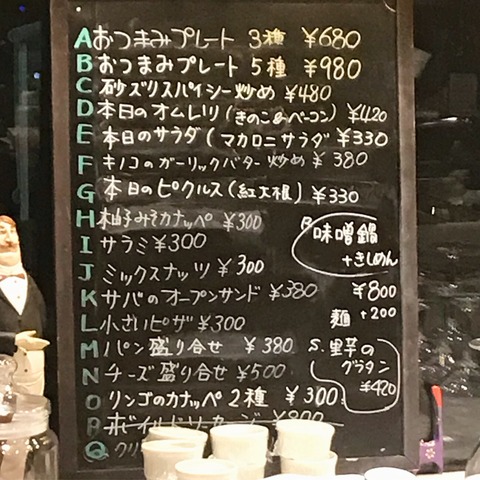 A おつまみプレート 3種 ¥680
B おつまみプレート 5種 ¥980
C 砂ズリスパイシー炒め ¥480
D 本日のオムレツ (きのこ&ベーコン) ¥420
E 本日のサラダ (マカロニサラダ ¥330
F キノコのガーリックバター炒め ¥380
G 本日のピクルス (紅大根) ¥330
H 柚子みそカナッペ ¥300
I サラミ ¥300
J ミックスナッツ ¥300
K サバのオープンサンド ¥380
L 小さいピザ ¥300
M パン盛り合せ ¥380
N チーズ盛り合せ ¥500
O リンゴのカナッペ 2種 ¥300
ボイルドソーセージ ¥800
Q クリ
味噌鍋
+きしめん
¥800
麺 +200
S. 里芋の
グラタン
¥420